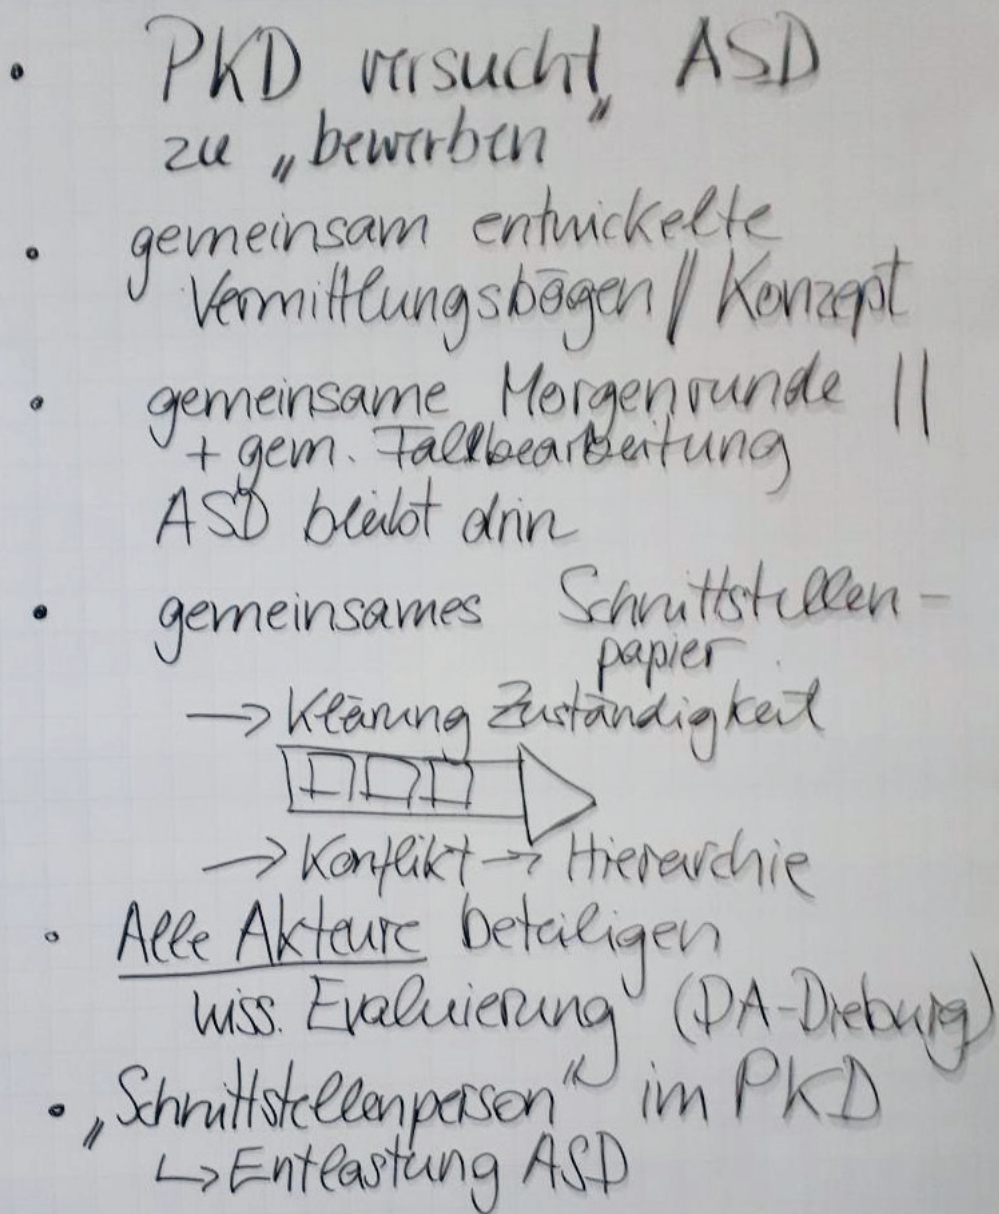 • PKD versucht, ASD
zu „bewerben"
• gemeinsam entwickelte
Vermittlungsbögen // Konzept
• gemeinsame Morgenrunde ||
+ gem. Fallbearbeitung
ASD bleibt drin
• gemeinsames Schnittstellen-
papier
→ Klärung Zuständigkeit
→ Konflikt → Hierarchie
• Alle Akteure beteiligen
wiss. Evaluierung (DA-Dieburg)
• „Schnittstellenperson" im PKD
↳ Entlastung ASD